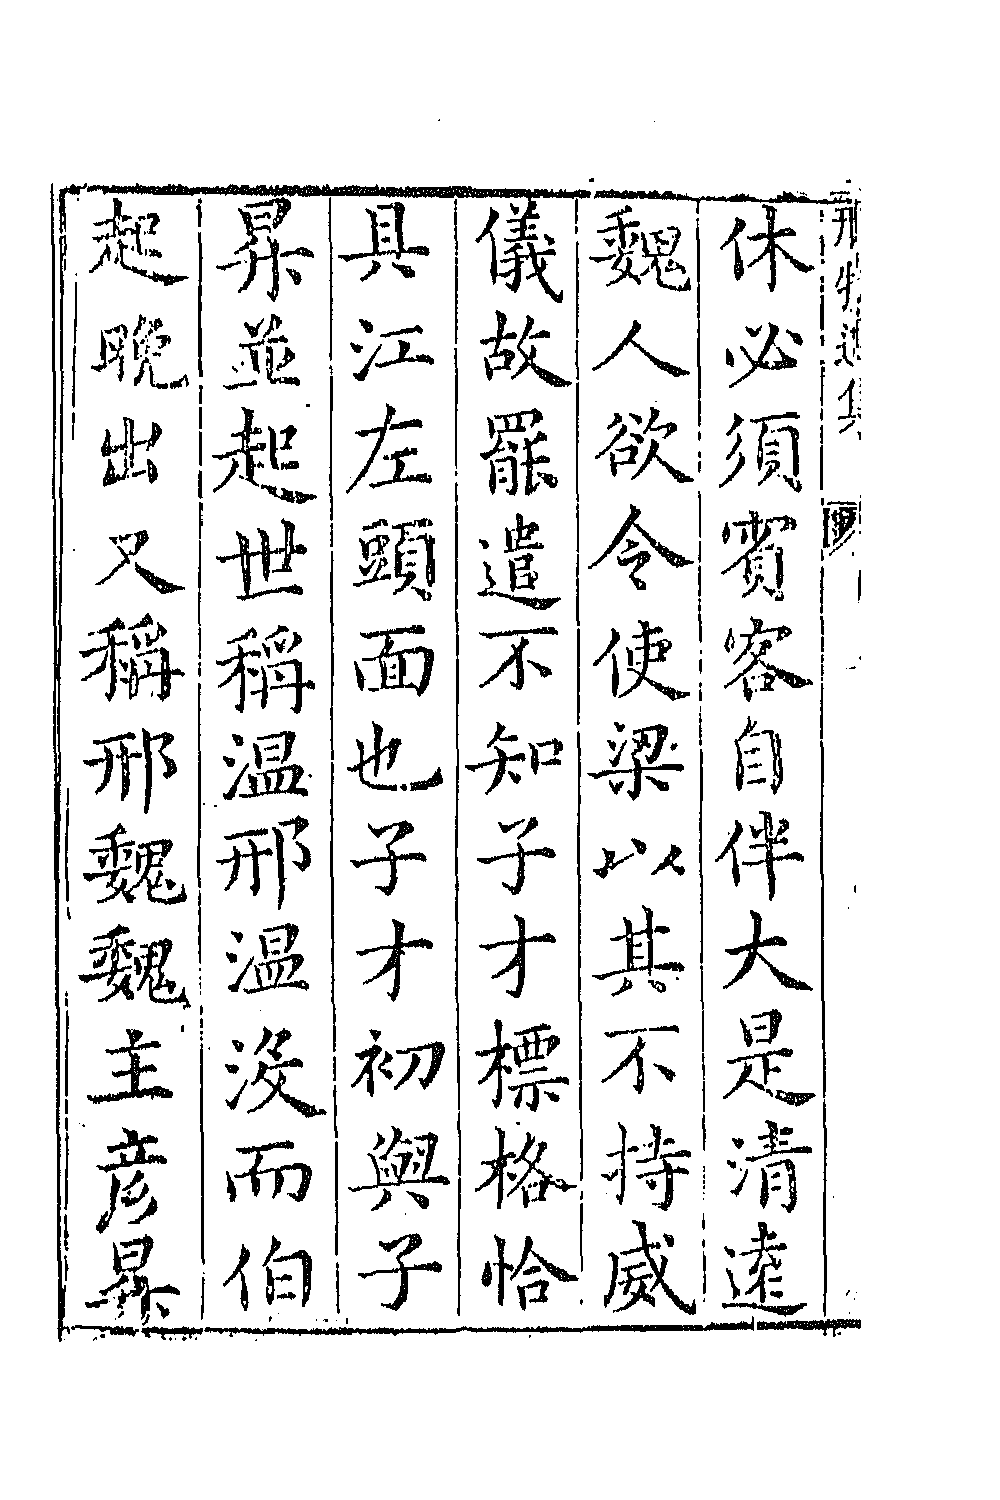 休必須賓客自伴大是清遠
魏人欲令使梁以其不持威
儀故罷遣不知子才標格恰
具江左頭面也子才初與子
昇並起世稱温邢温沒而伯
起晩出又稱邢魏魏主彦昇